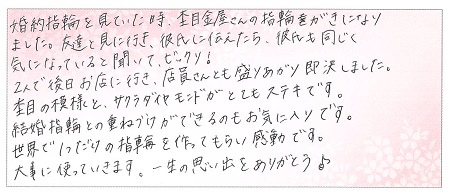 婚約指輪を見ていた時、杢目金屋さんの指輪達がきになり
ました。友達と見に行き、彼氏に伝えたら、彼氏も同じく
気になっていると聞いて、ビックリ!
2人で後日お店に行き、店員さんとも盛りあがり即決しました。
杢目の模様と、サクラダイヤモンドがとてもステキです。
結婚指輪との重ねづけができるのもお気に入りです。
世界で1つだけの指輪を作ってもらい感動です。
大事に使っていきます。一生の思い出をありがとう♪